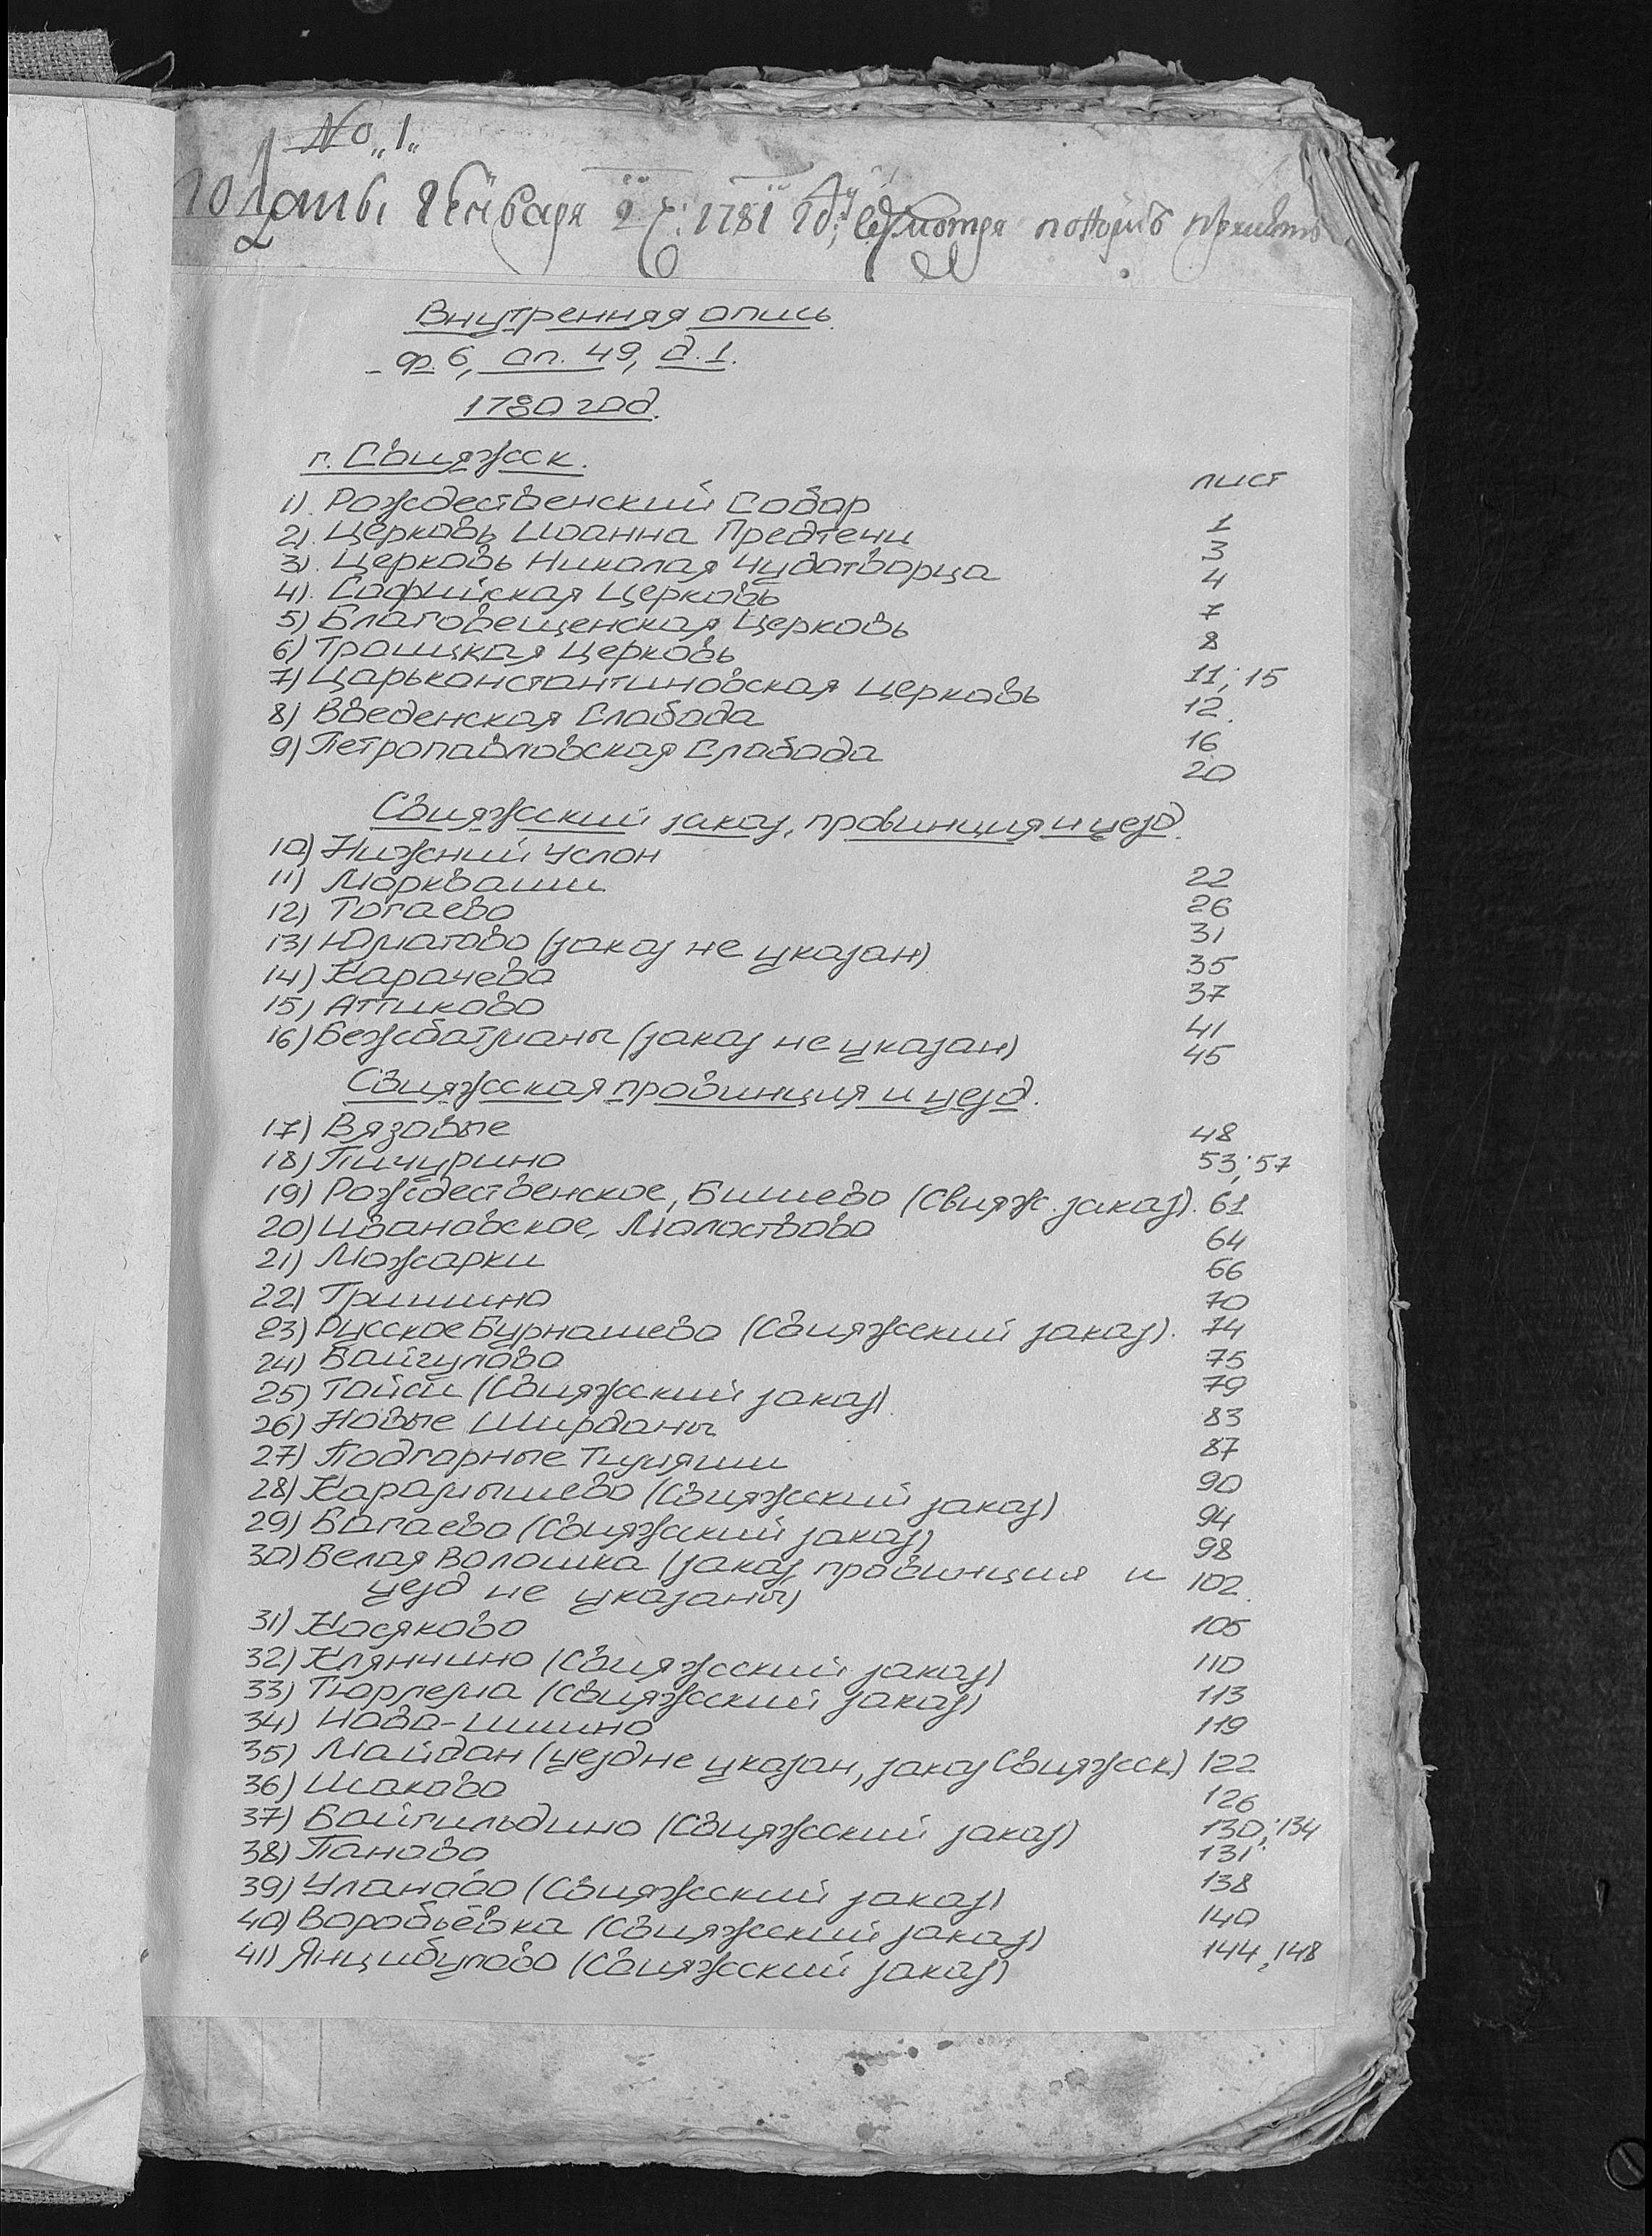 № „1„
генваря 2 г: 1781 году
Внутренняя опись
ф. 6, оп. 49, д. 1.
1780 год.
г. Свияжск.
лист
1). Рождественский Собор 1
2). Церковь Иоанна Предтечи 3
3). Церковь Николая Чудотворца 4
4). Софийская Церковь 7
5) Благовещенская Церковь 8
6) Троицкая Церковь 11; 15
7) Царьконстантиновская Церковь 12.
8) Введенская Слобода 16
9) Петропавловская Слобода 20
Свияжский заказ, провинция и уезд.
10) Нижний Услон 22
11) Моркваши 26
12) Тогаево 31
13) Юматово (заказ не указан) 35
14) Карачево 37
15) Аттиково 41
16) Бежбатманы (заказ не указан) 45
Свияжская провинция и уезд.
17) Вязовые 48
18) Пичурино 53; 57
19) Рождественское, Бишево (Свияж. заказ). 61
20) Ивановское, Малоствово 64
21) Можарки 66
22) Гришино 70
23) Русское Бурнашево (Свияжский заказ). 74
24) Байгулово 75
25) Тойси (Свияжский заказ) 79
26) Новые Ширданы 83
27) Подгорные Тимяши 87
28) Карамышево (Свияжский заказ) 90
29) Багаево (Свияжский заказ) 94
30) Белая Волошка (заказ, провинция и 98
уезд не указаны) 102.
31) Косяково 105
32) Клянчино (Свияжский заказ) 110
33) Тюрлема (Свияжский заказ) 113
34) Ново-Ишино 119
35) Майдан (уезд не указан, заказ Свияжск) 122
36) Исаково 126
37) Байгильдино (Свияжский заказ) 130; 134
38) Паново 131
39) Уланово (Свияжский заказ) 138
40) Воробьёвка (Свияжский заказ) 140
41) Янцибулово (Свияжский заказ) 144, 148